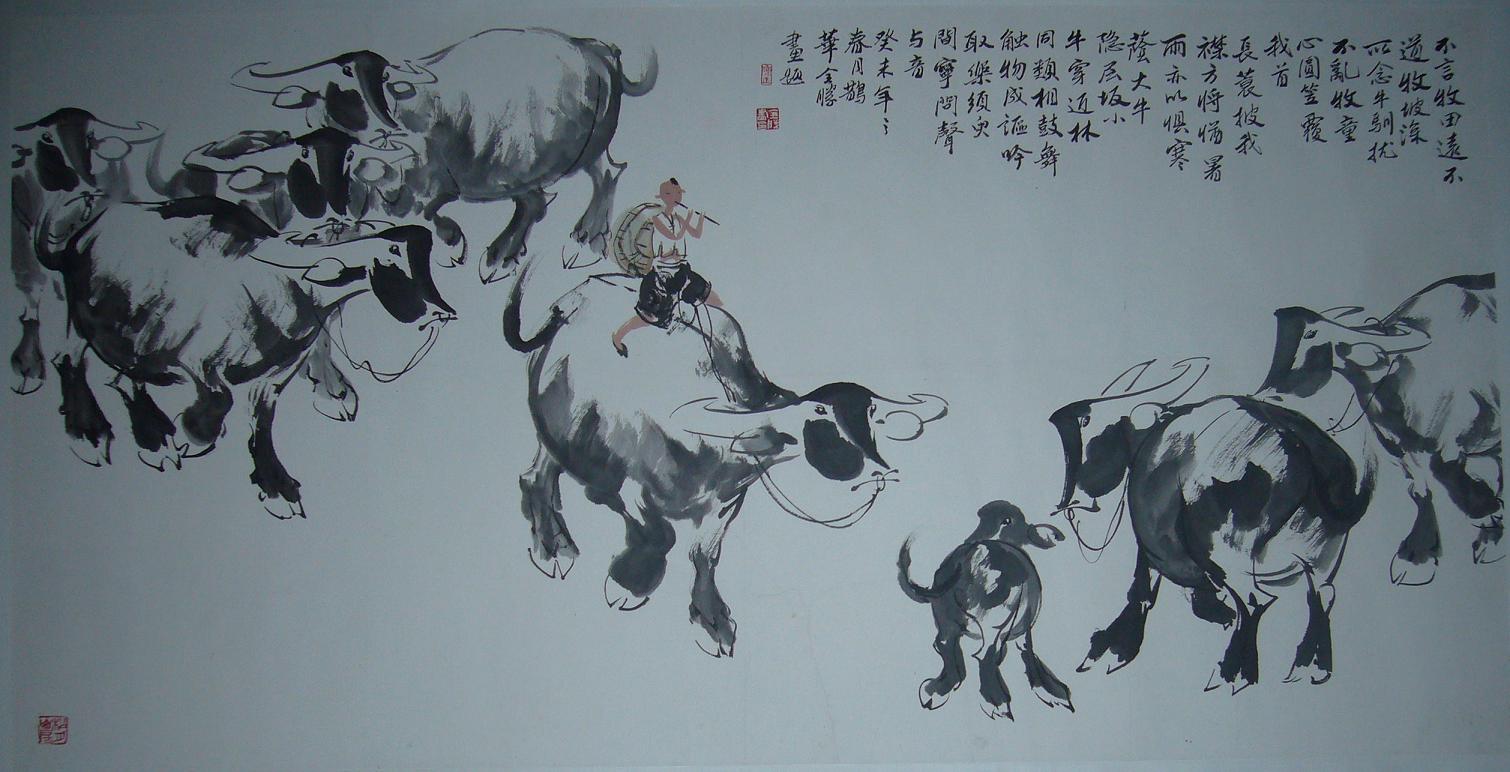 不言牧田遠不
道牧坡深
所念牛馴扰
不亂牧童
心圓笠覆
我首
長蓑披我
襟方将暑
雨亦以惧寒
蔭大牛
隐层坂小
牛穿近林
同類相鼓舞
触物成謳吟
取樂須臾
間寧問聲
与音
癸未年之
春月鵲
華金
畫